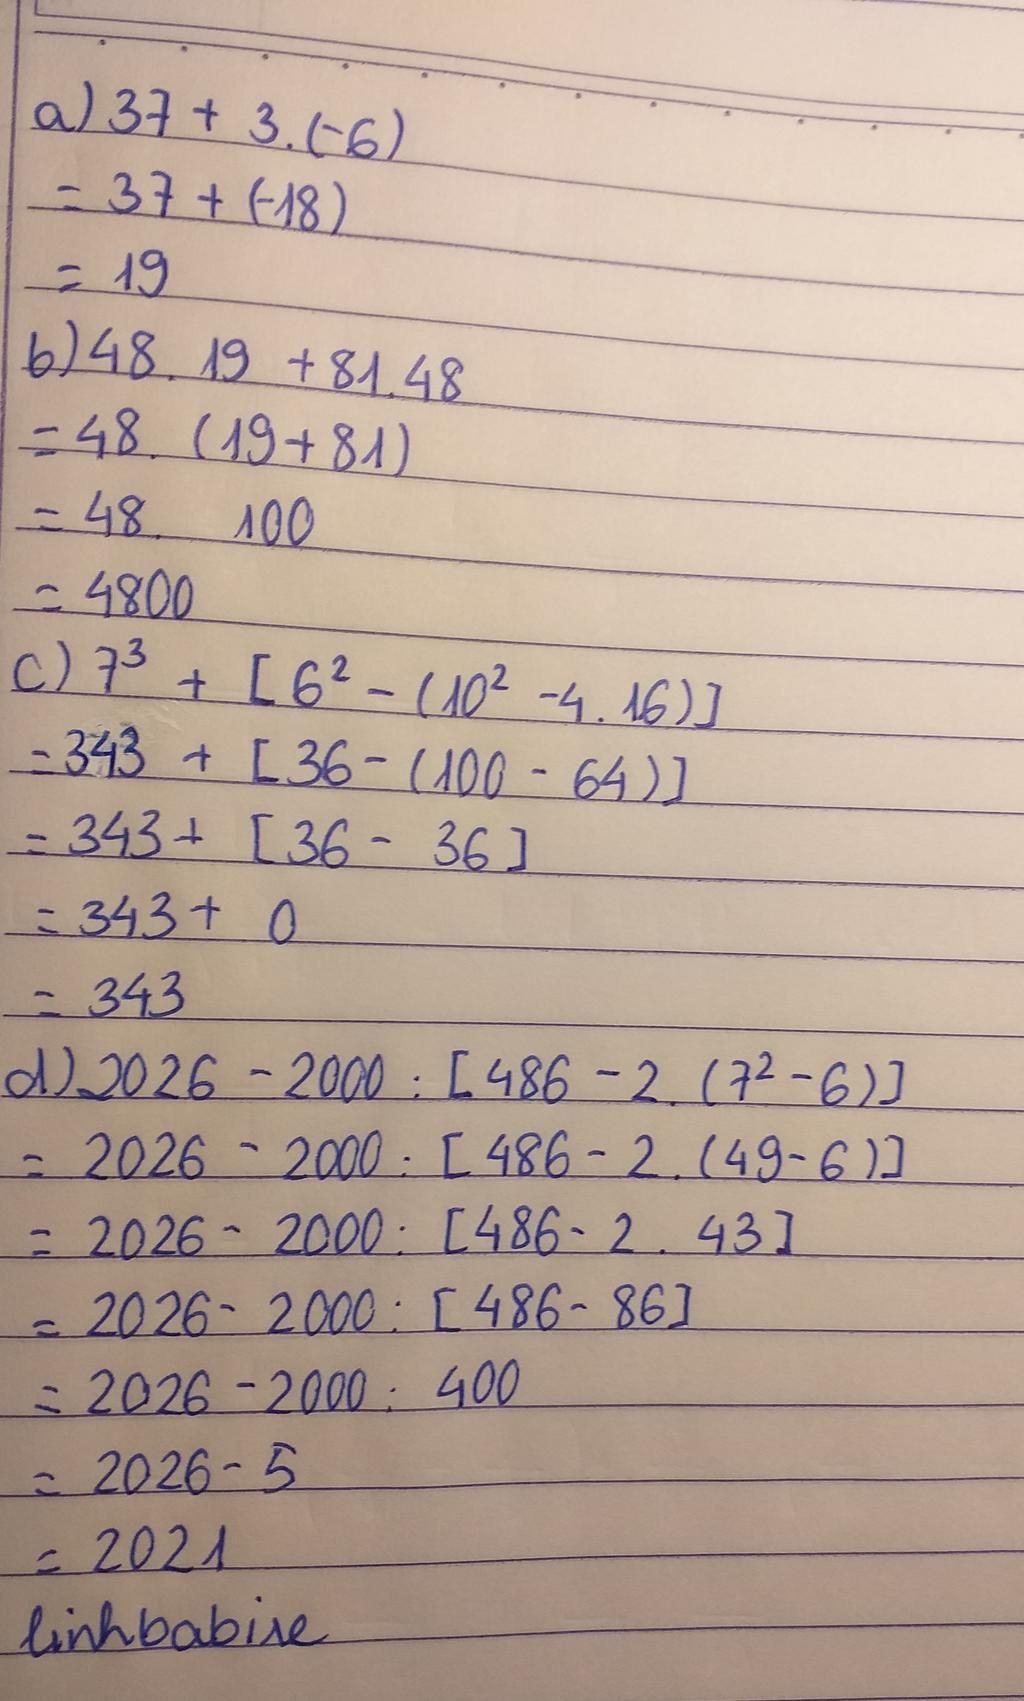 a) 37 + 3.(-6)
= 37 + (-18)
= 19
b) 48. 19 + 81.48
= 48. (19 + 81)
= 48. 100
= 4800
c) 7³ + [6² - (10² - 4.16)]
= 343 + [36 - (100 - 64)]
= 343 + [36 - 36]
= 343 + 0
= 343
d) 2026 - 2000 : [486 - 2. (7² - 6)]
= 2026 - 2000 : [486 - 2. (49 - 6)]
= 2026 - 2000 : [486 - 2. 43]
= 2026 - 2000 : [486 - 86]
= 2026 - 2000 : 400
= 2026 - 5
= 2021
linhbabire